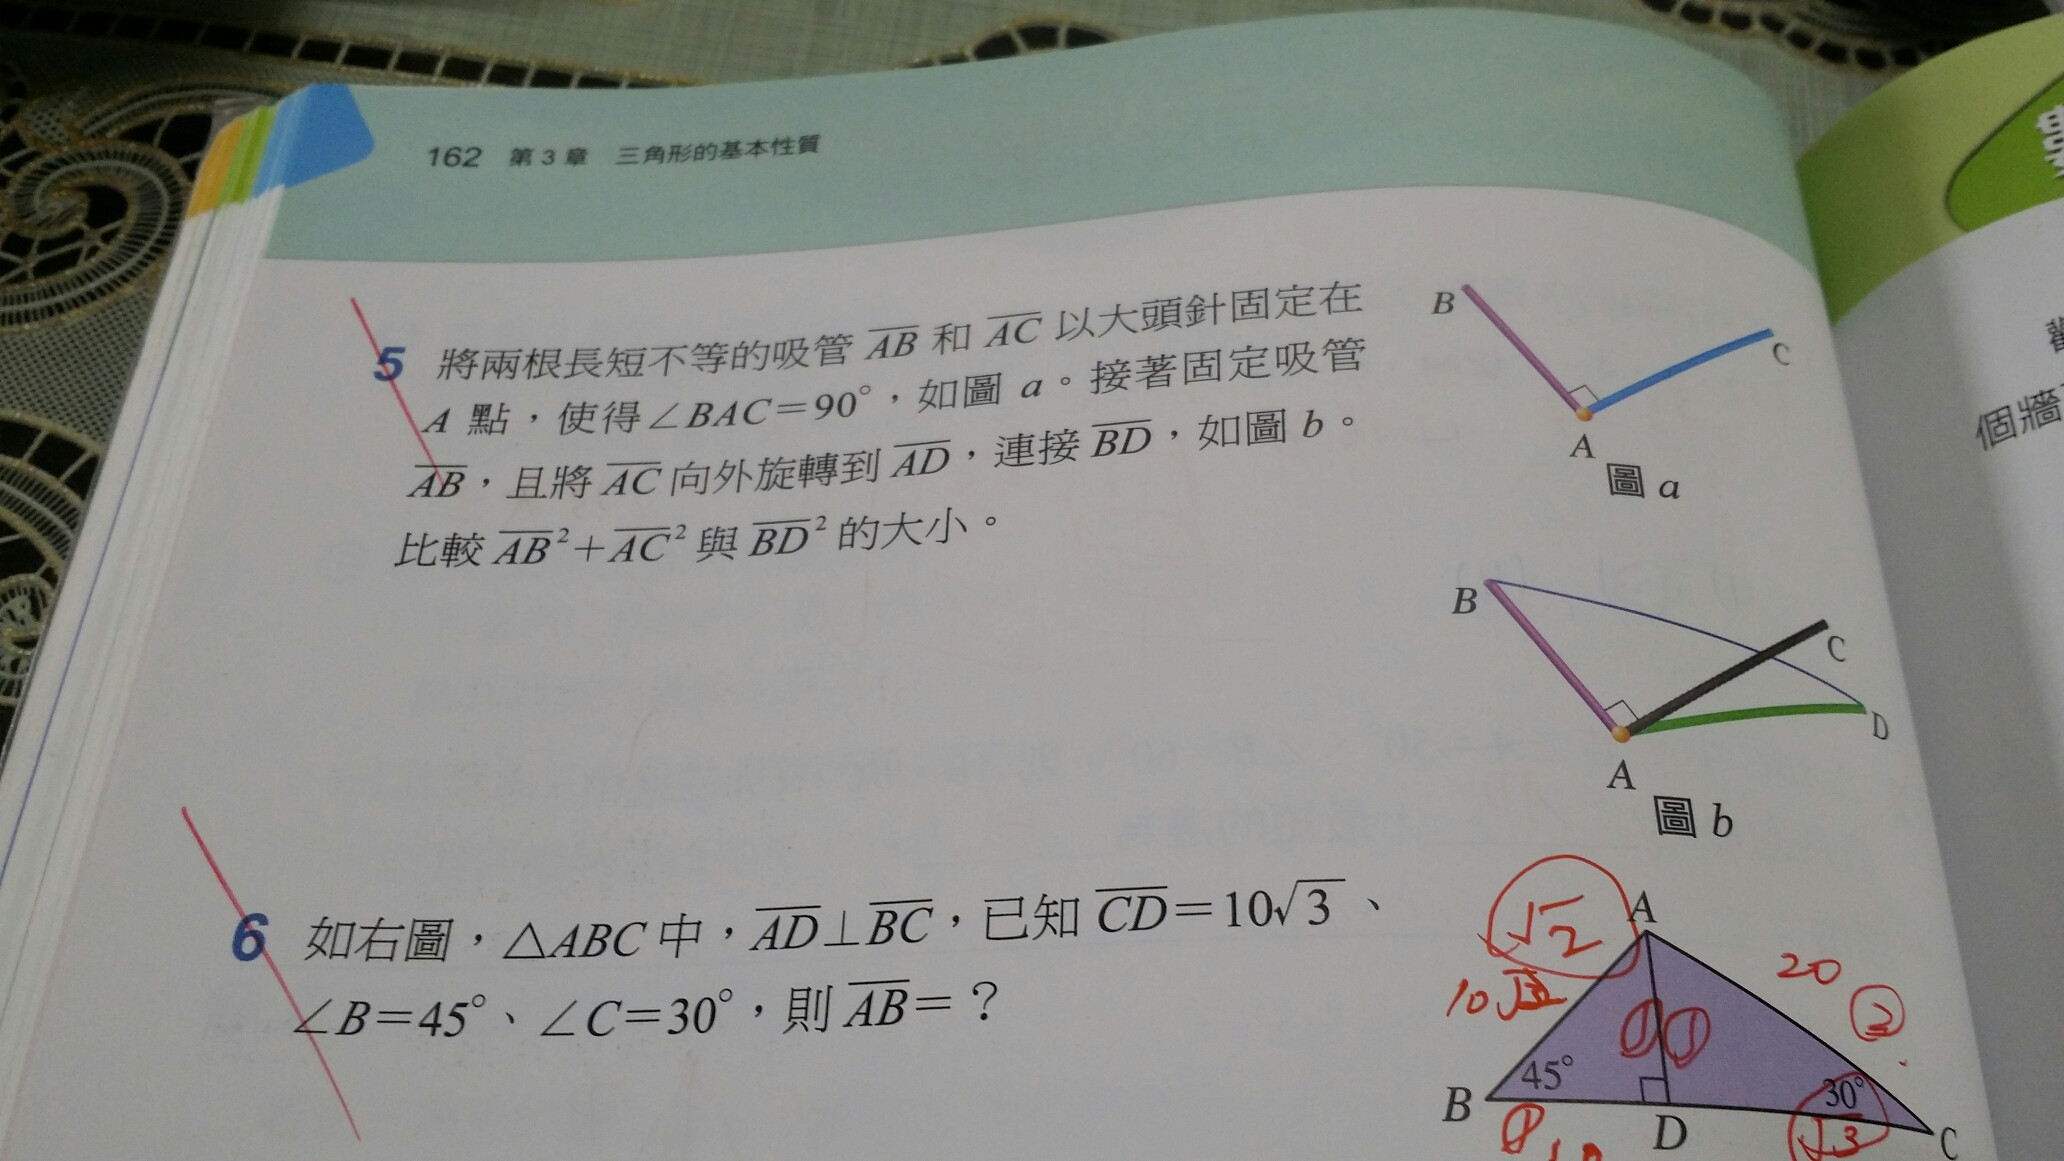 162 第3章 三角形的基本性質
5 將兩根長短不等的吸管 AB 和 AC 以大頭針固定在
A 點,使得∠BAC=90°,如圖 a。接著固定吸管
AB,且將 AC 向外旋轉到 AD,連接 BD,如圖 b。
比較 AB²+AC² 與 BD² 的大小。
B
C
A
圖 a
B
C
D
A
圖 b
6 如右圖,△ABC 中,AD⊥BC,已知 CD=10√3、
∠B=45°、∠C=30°,則 AB=?
√2
A
20
2
1 1
45°
30°
B
1
D
√3
C
個牆